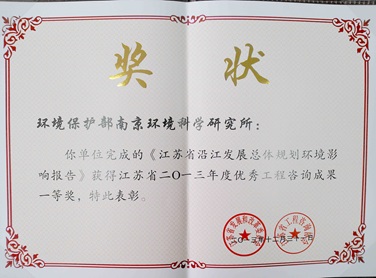 奖 状
环境保护部南京环境科学研究所：
你单位完成的《江苏省沿江发展总体规划环境影
响报告》获得江苏省二〇一三年度优秀工程咨询成果
一等奖，特此表彰。